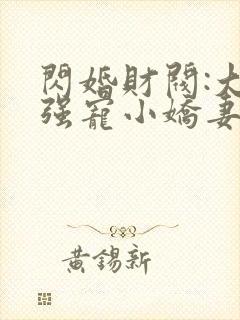 閃婚財閥:大
强寵小嬌妻
黃錫新